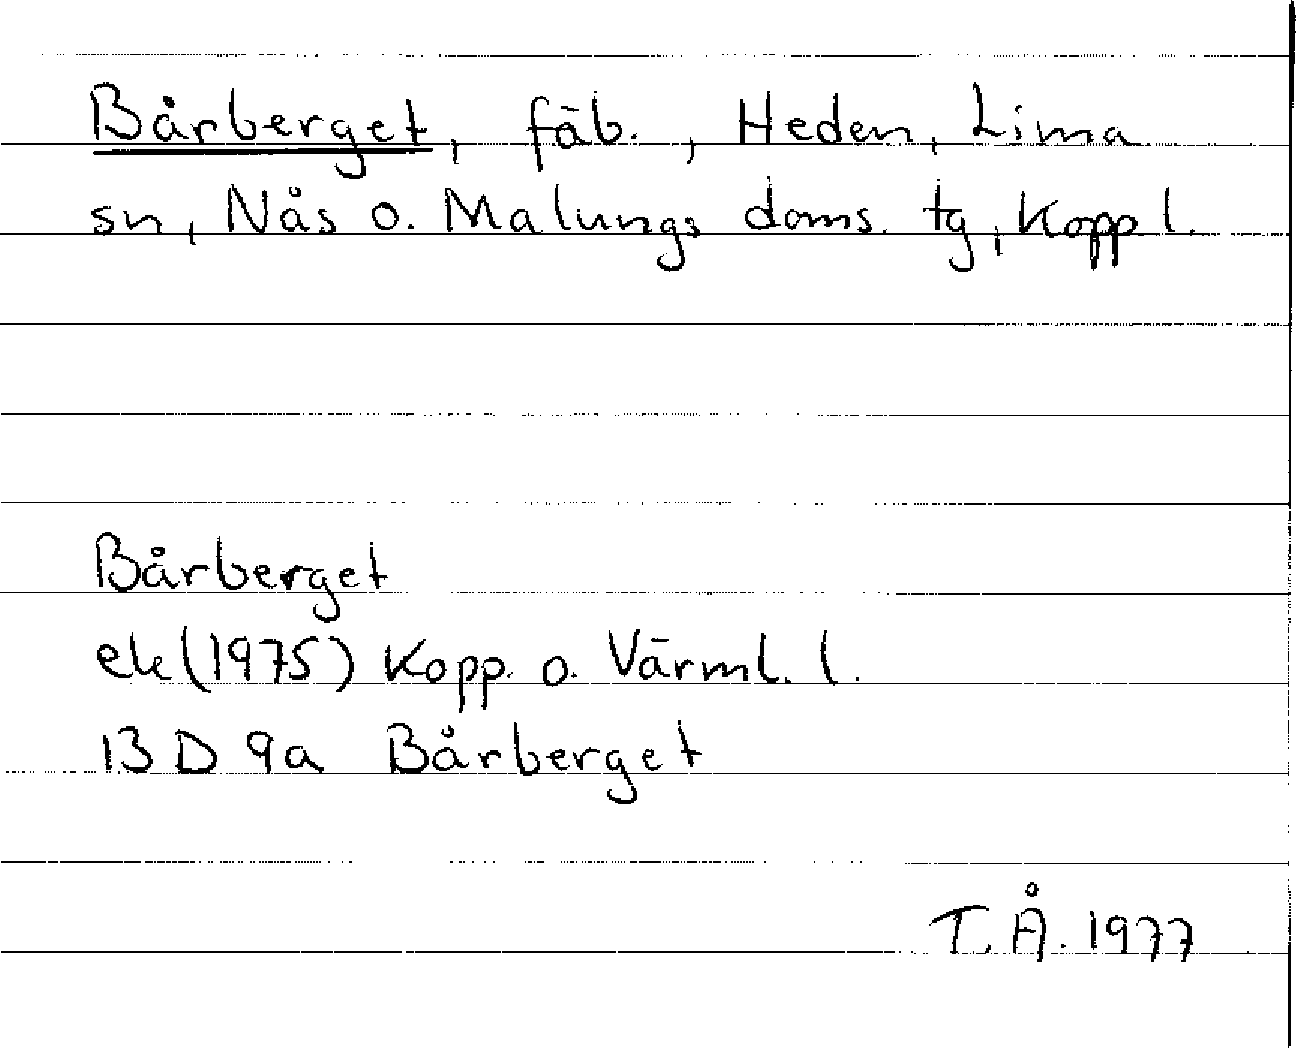 Bårberget, fäb., Heden, Lima
sn, Nås o. Malungs doms. tg, Kopp l.
Bårberget
ek (1975) Kopp. o. Värml. l.
13 D 9a Bårberget
T.Å. 1977